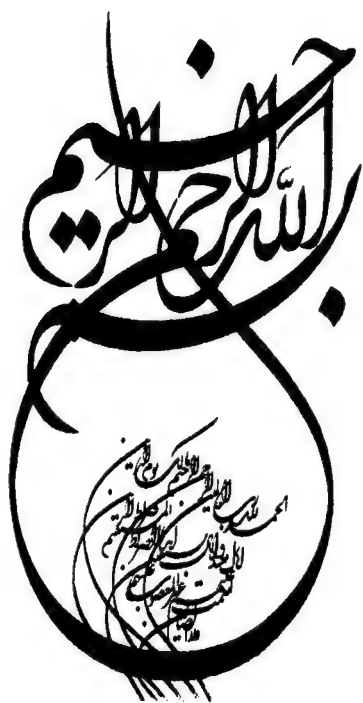 بسم الله الرحمن الرحیم
الحمد لله رب العالمین
الرحمن الرحیم
مالک یوم الدین
ایاک نعبد و ایاک نستعین
اهدنا الصراط المستقیم
صراط الذین انعمت علیهم
غیر المغضوب علیهم
ولا الضالین